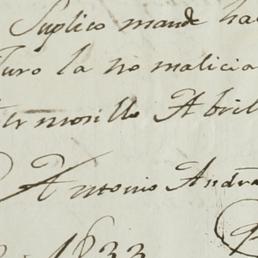 Suplico mande ha
Juro la no malicia
Hermosillo Abril
Antonio Andra
1833